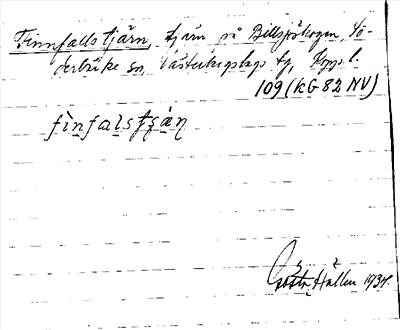 Finnfallstjärn, tjärn på Billsjöskogen, Sö-
derbärke sn, Västerbergslags dg, Kopp. l.
109 (KG 82 NV)
finfalstʃän
Gösta Hallen 1934.